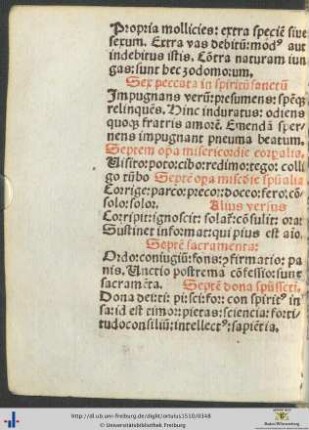 Propria mollicies: extra speciẽ siue
sexum. Extra vas debitũ: modꝰ aut
indebitus istis. Cõtra naturam iun
gas: sunt hec zodomorum.
Sex peccata in spiritũ sanctũ
Impugnans verũ: presumens: spẽqꝫ
relinquẽs. Hinc induratus: odiens
quoqꝫ fratris amorẽ. Emendã sper-
nens impugnant pneuma beatum.
Septem opa misericordie corpalia.
Uisito: poto: cibo: redimo: tego: colli
go: cõdo Septẽ opa miscďie spũalia
Corrige: parco: precor: doceo: fero: cõ-
solor: solor. Alius versus
Corripit: ignoscit: solat: cõsulit: orat
Sustinet informat: qui pius est aio.
Septẽ sacramenta:
Ordo: coniugiũ: fons: ꝯfirmatio: pa
nis. Unctio postrema cõfessio: sunt
sacramẽta. Septẽ dona spũssctĩ.
Dona: pi: sci: for: con spiritꝰ in
sa: id est timor: pietas: sciencia: forti
tudo: consiliũ: intellectꝰ: sapiẽtia.
http://dl.ub.uni-freiburg.de/diglit/ortulus1518/0348
© Universitätsbibliothek Freiburg
Baden-Württemberg